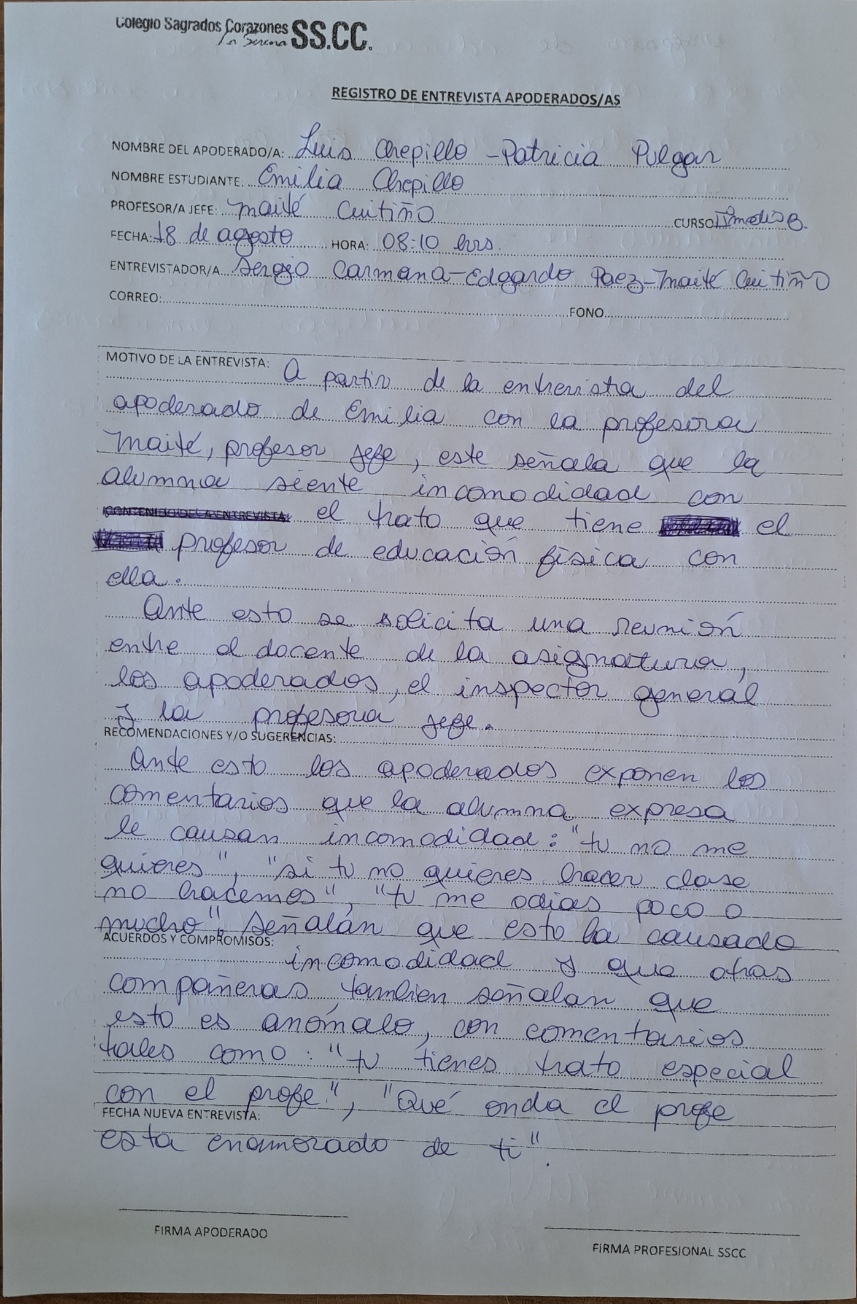 Colegio Sagrados Corazones SS.CC.
La Serena
REGISTRO DE ENTREVISTA APODERADOS/AS
NOMBRE DEL APODERADO/A: Luis Chepillo - Patricia Pulgar
NOMBRE ESTUDIANTE: Emilia Chepillo
PROFESOR/A JEFE: Maité Cuitiño CURSO II medio B.
FECHA: 18 de agosto HORA: 08:10 hrs.
ENTREVISTADOR/A Sergio Carmana - Edgardo Paez - Maité Cuitiño
CORREO: FONO
MOTIVO DE LA ENTREVISTA: A partir de la entrevista del
apoderado de Emilia con la profesora
Maité, profesor jefe, este señala que la
alumna siente incomodidad con
CONTENIDO DE LA ENTREVISTA: el trato que tiene el
profesor de educación física con
ella.
Ante esto se solicita una reunión
entre el docente de la asignatura,
los apoderados, el inspector general
y la profesora jefe.
RECOMENDACIONES Y/O SUGERENCIAS:
Ante esto los apoderados exponen los
comentarios que la alumna expresa
le causan incomodidad: "tu no me
quieres", "si tu no quieres hacer clase
no hacemos", "tu me odias poco o
mucho". Señalán que esto ha causado
ACUERDOS Y COMPROMISOS:
incomodidad y que otras
compañeras, tambien señalan que
esto es anómalo, con comentarios
tales como: "tu tienes trato especial
con el profe", "Qué onda el profe
FECHA NUEVA ENTREVISTA:
esta enamorado de ti".
FIRMA APODERADO
FIRMA PROFESIONAL SSCC